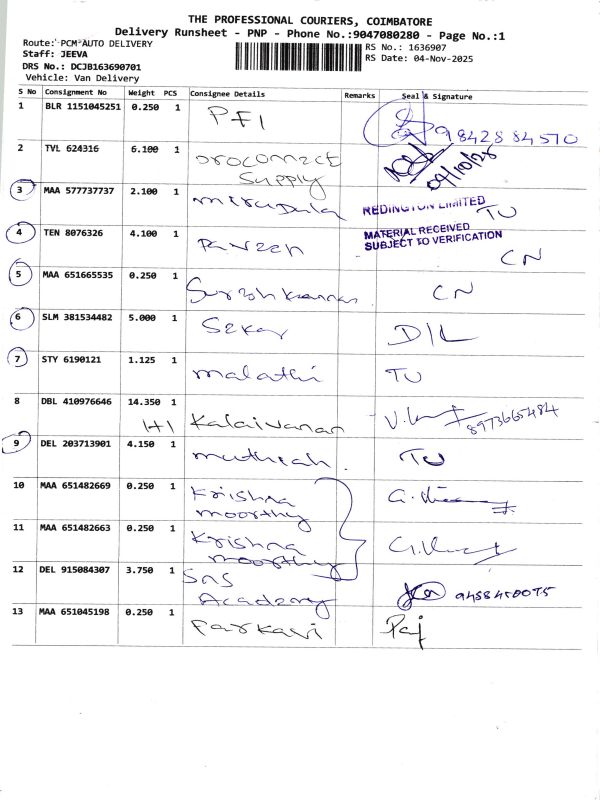 THE PROFESSIONAL COURIERS, COIMBATORE
Delivery Runsheet - PNP - Phone No.:9047080280 - Page No.:1
Route: PCM AUTO DELIVERY
Staff: JEEVA
DRS No.: DCJB163690701
Vehicle: Van Delivery
RS No.: 1636907
RS Date: 04-Nov-2025
S No Consignment No Weight PCS Consignee Details Remarks Seal & Signature
1 BLR 1151045251 0.250 1 PFI 9842884570
2 TVL 624316 6.100 1 proconnect
Supply
3 MAA 577737737 2.100 1 mirudula TU
REDINGTON LIMITED
MATERIAL RECEIVED
SUBJECT TO VERIFICATION
4 TEN 8076326 4.100 1 CN
5 MAA 651665535 0.250 1 CN
6 SLM 381534482 5.000 1 D/L
7 STY 6190121 1.125 1 malathi TU
8 DBL 410976646 14.350 1 Kalaivanan 8973665484
1+1
9 DEL 203713901 4.150 1 muthiah. TU
10 MAA 651482669 0.250 1 Krishna
moorthy
11 MAA 651482663 0.250 1 Krishna
moorthy
12 DEL 915084307 3.750 1 SNS
Academy
13 MAA 651045198 0.250 1 Parkavi